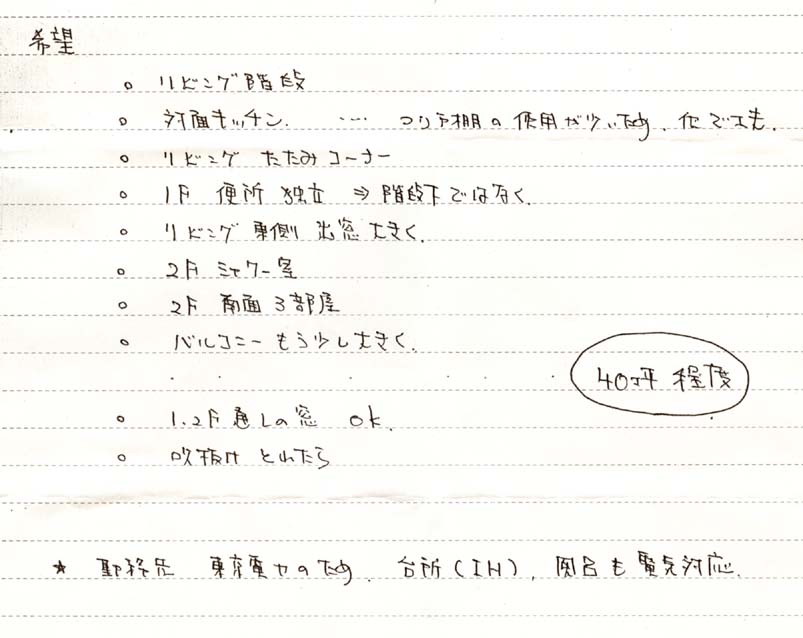 希望
○ リビング階段
○ 対面キッチン. … つり戸棚の使用が少ないため、化ではても.
○ リビング たたみコーナー
○ 1F 便所 独立 ⇒ 階段下ではなく.
○ リビング 東側 出窓 大きく.
○ 2F シャワー室
○ 2F 南面 3部屋
○ バルコニー もう少し大きく.
40坪 程度
○ 1.2F 通しの窓 ok.
○ 吹抜け とれたら
★ 勤務先 東京電力のため. 台所(IH), 風呂も電気対応.